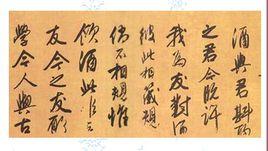 酒與君斟酌
之君今既許
我為友對酒
彼此相箴規
倘不相規惟
飲酒此非云
友今之友酌
學今人與古